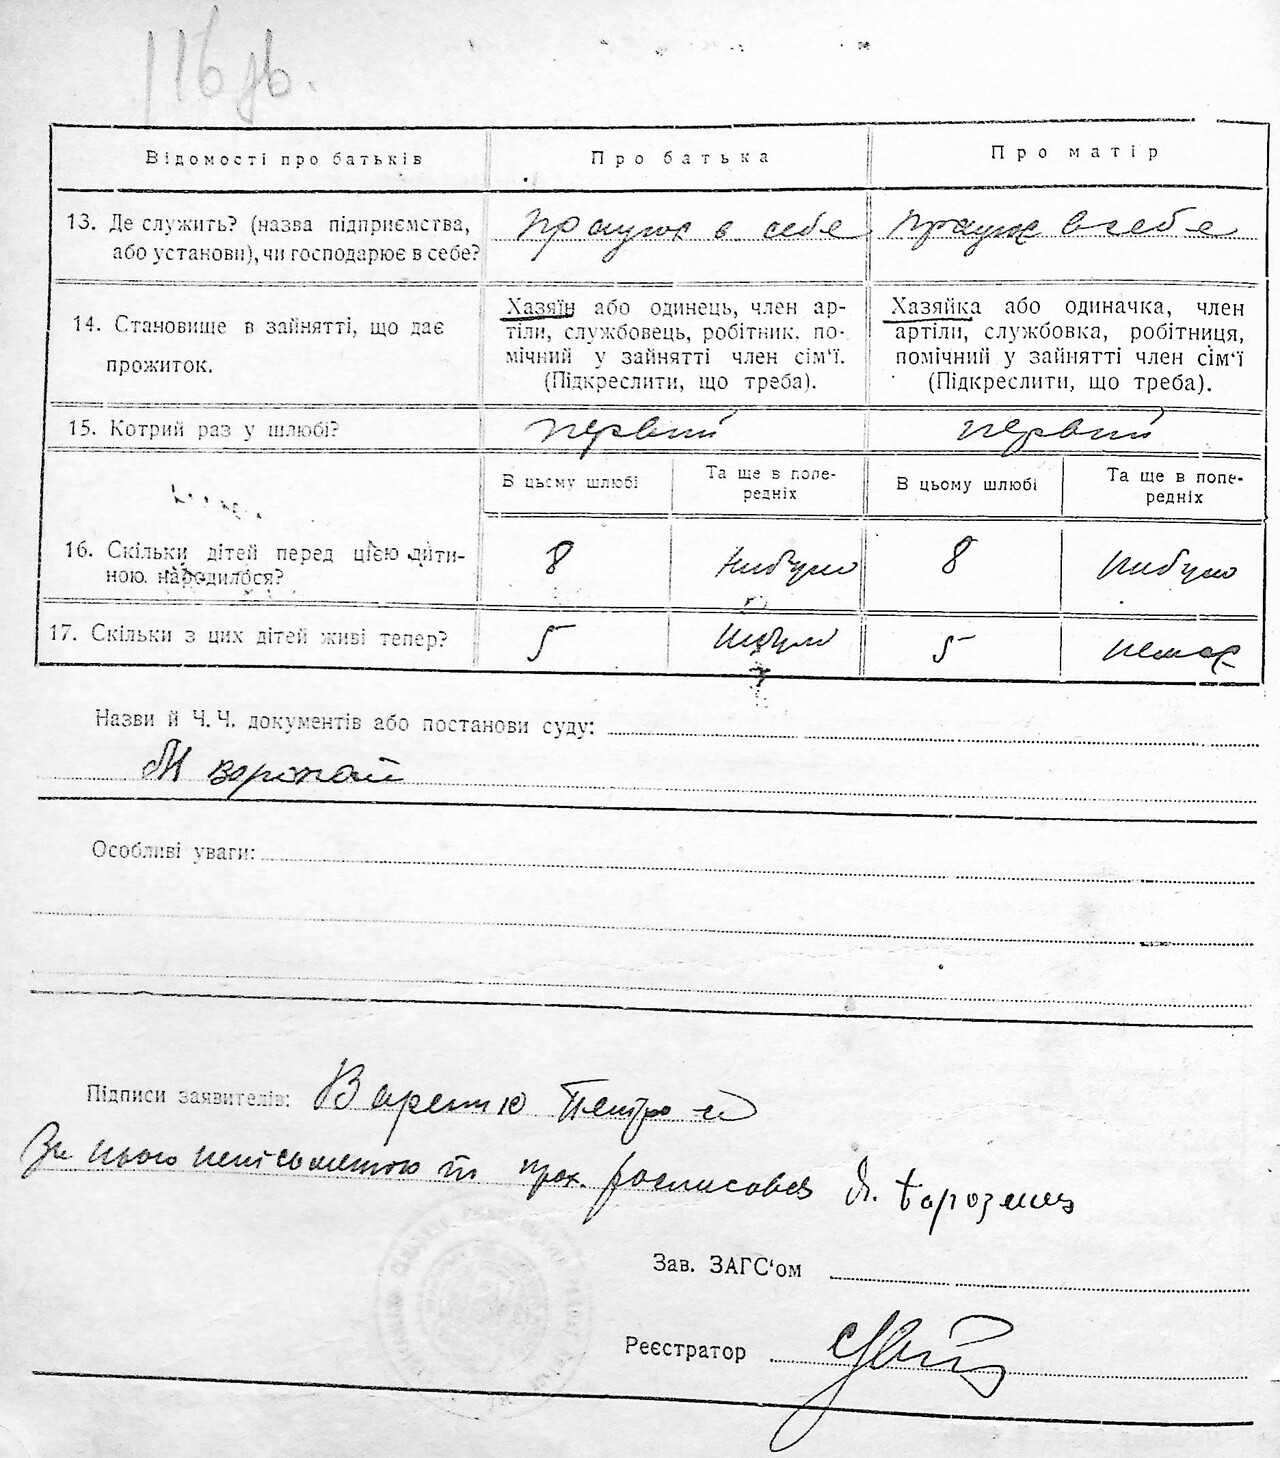 116 зв.
Відомості про батьків
Про батька
Про матір
13. Де служить? (назва підприємства,
або установи), чи господарює в себе?
працює в себе
працює в себе
14. Становище в зайнятті, що дає
прожиток.
Хазяїн або одинець, член ар-
тіли, службовець, робітник. по-
мічний у зайнятті член сім'ї.
(Підкреслити, що треба).
Хазяйка або одиначка, член
артіли, службовка, робітниця,
помічний у зайнятті член сім'ї
(Підкреслити, що треба).
15. Котрий раз у шлюбі?
первий
первий
В цьому шлюбі
Та ще в попе-
редніх
В цьому шлюбі
Та ще в попе-
редніх
16. Скільки дітей перед цією дити-
ною народилося?
8
нибуло
8
нибуло
17. Скільки з цих дітей живі тепер?
5
нибуло
5
немає
Назви й Ч.Ч. документів або постанови суду:
Особливі уваги:
Підписи заявителів:
За нього неписьменого
прох. росписався
Зав. ЗАГС'ом
Реєстратор